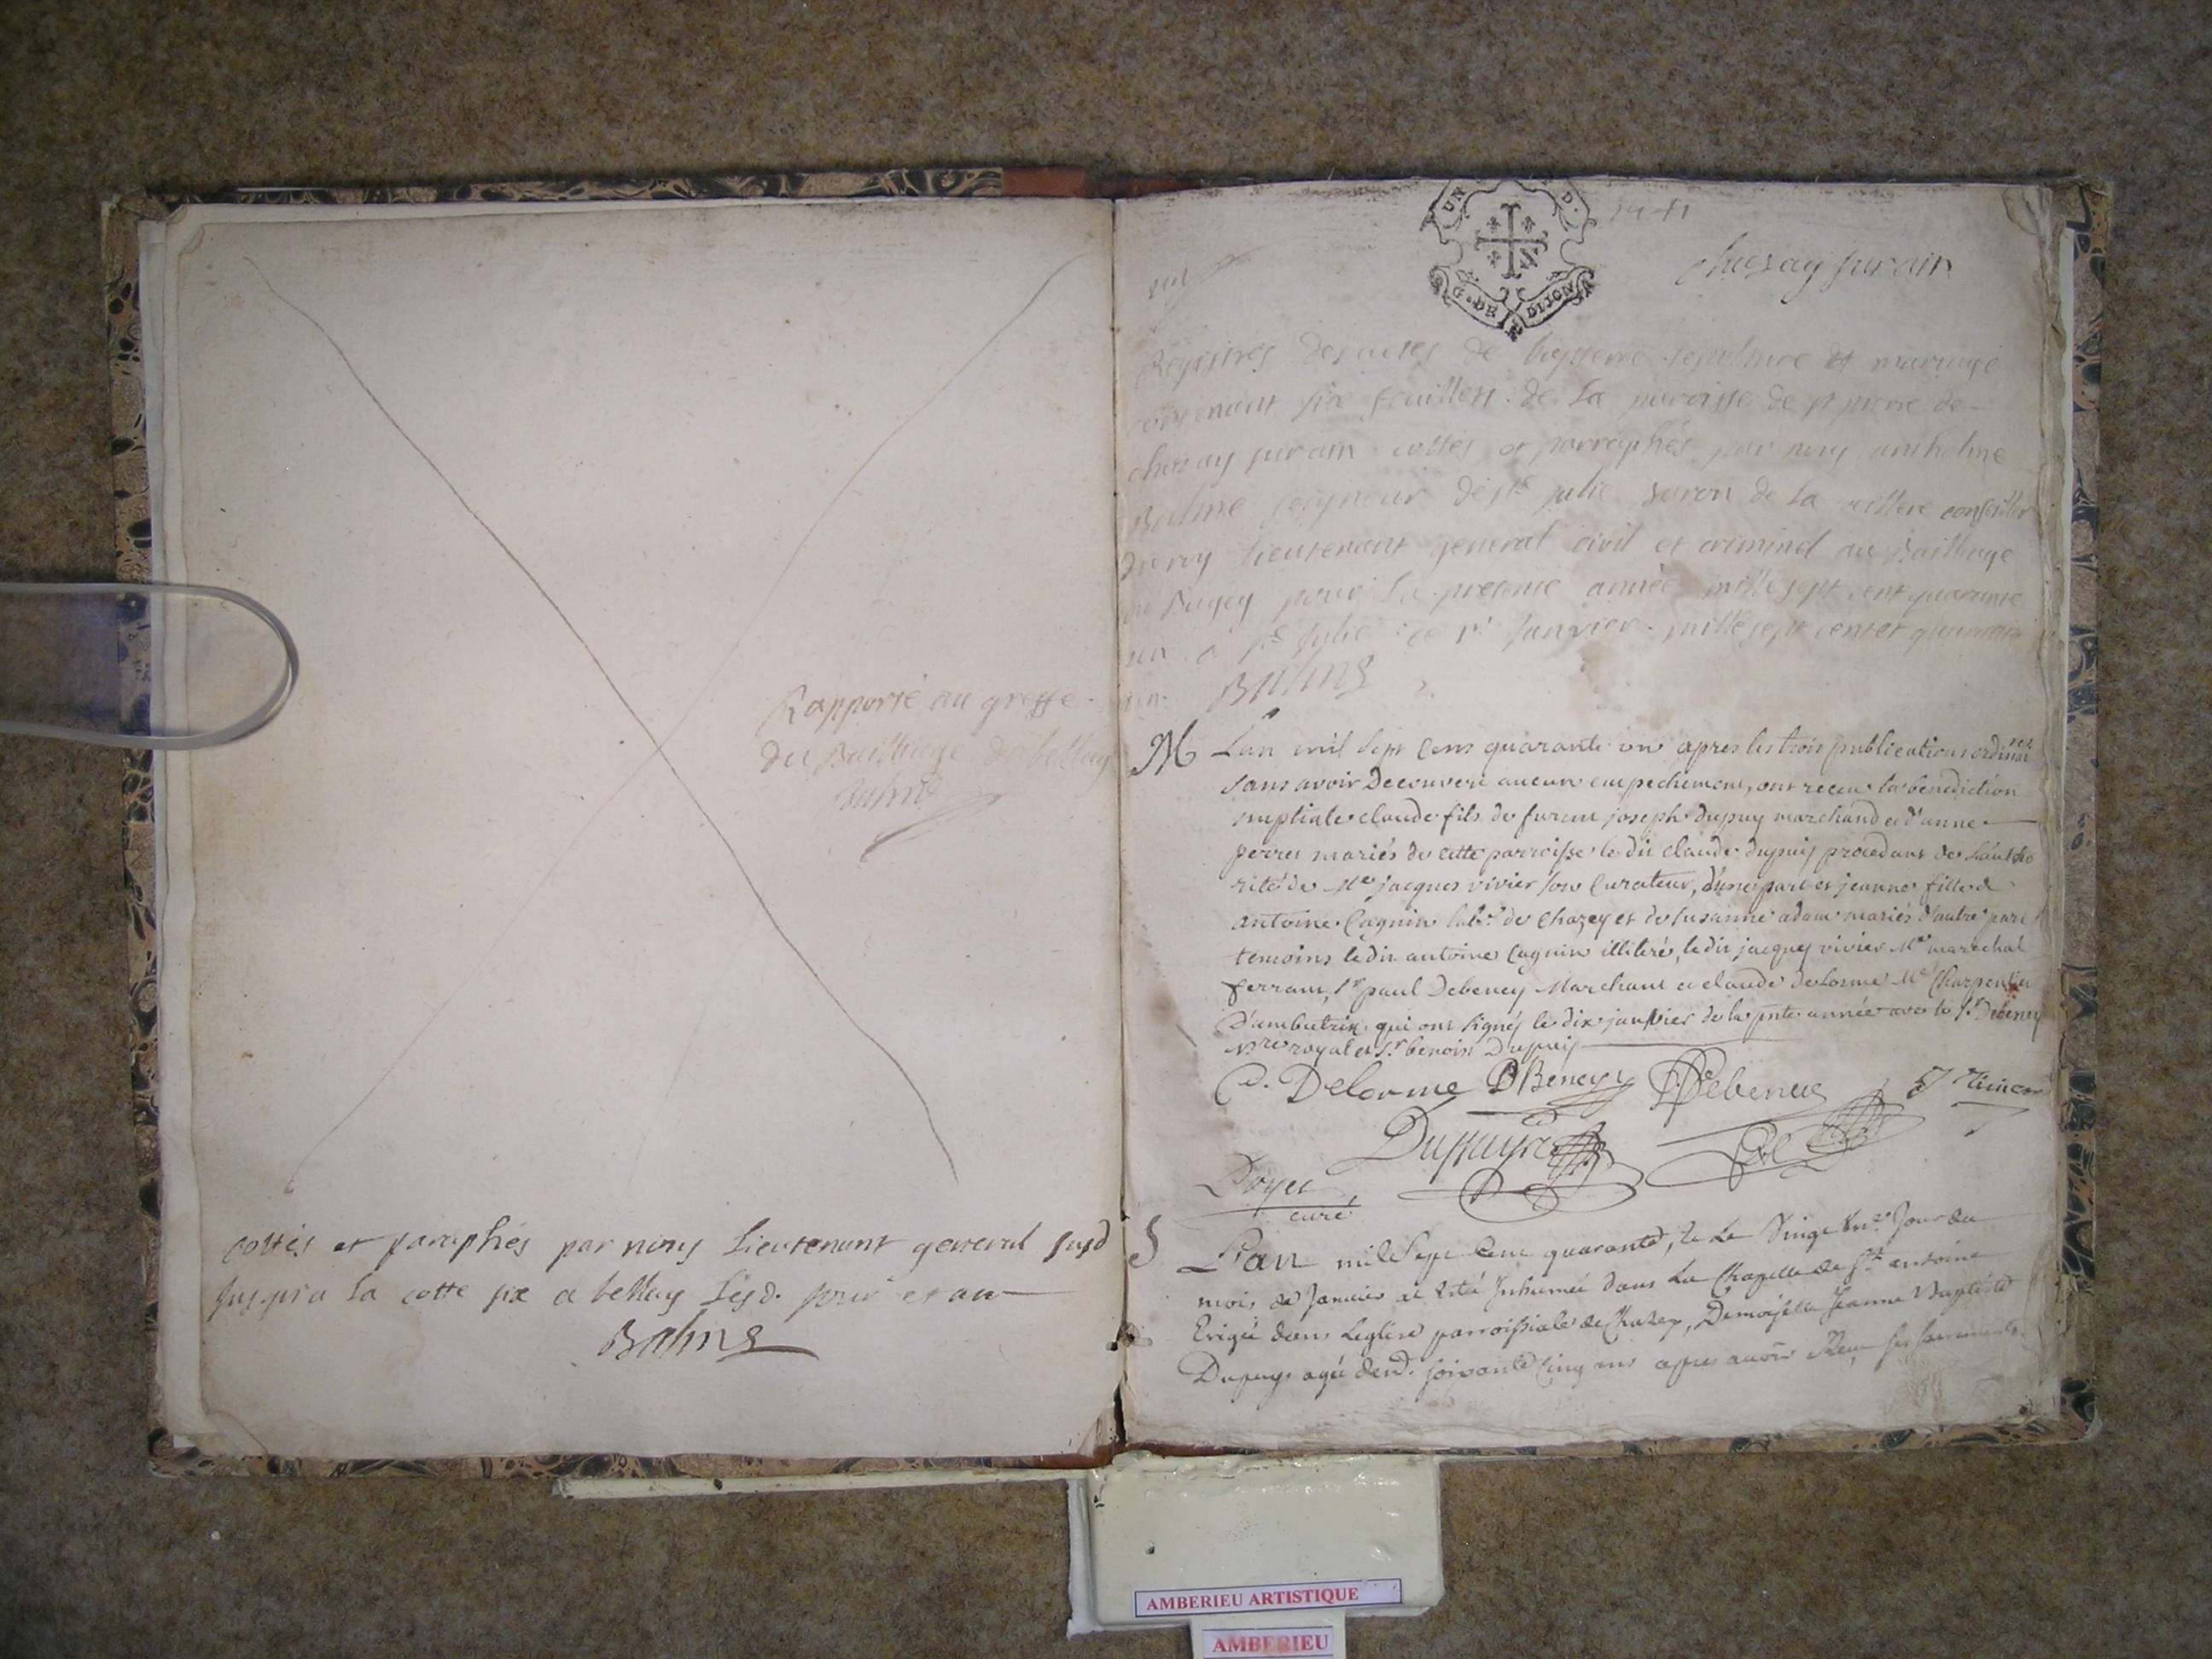 Rapporté au greffe
du Bailliage de bellay
Balme
cottés et paraphés par nous Lieutenant general susd
jusqu'a la cotte six a bellay lesd. jour et an
Balme
UN D.
G. DE DIJON
1741
chazay sur ain
un
Registres des actes de bapteme sepulture et mariage
contenant six feuillets de la paroisse de st pierre de
chazay sur ain cottés et parraphés par nous anthelme
Balme seigneur de ste julie baron de la conseiller
du roy lieutenant general civil et criminel au bailliage
du Bugey pour la presente année mille sept cent quarante
un a ste Julie ce 1r janvier mille sept cent et quarante
un. Balme
M Lan mil sept cens quarante un apres les trois publications ordinaires
sans avoir decouvert aucun empechement, ont receu la benediction
nuptiale claude fils de furent joseph dupuy marchand et d'anne
perret mariés de cette parroisse le dit claude dupuis procedant de L'autho
rité de Me jacques vivier son Curateur, d'une part et jeanne fille d
antoine Cagnin labr. de Chazey et de susanne adam mariés d'autre part
temoins le dit antoine Cagnin illitéré, le dit jacques vivier Me marechal
ferrant, Sr paul Debeney Marchant et claude delorme Me Charpentier
d'ambutrix qui ont signés le dix janvier de la pnte année avec le Sr Debeney
Nre royal et Sr benoist Dupuis
C. Delorme DBeneyy PDebeney J Vivier
Dupuis
Doyet
curé
S L'an mil Sept Cent quarante, Et Le Vingt Une Jour du
mois de Janvier at Eté Inhumée dans La Chapelle de St antoine
Erigée dans Leglise parroissiale de Chazey, Demoiselle Jeanne Baptiste
Dupuys agée denv. soixante Cinq ans apres avoir Receu ses sacrements
AMBERIEU ARTISTIQUE
AMBERIEU